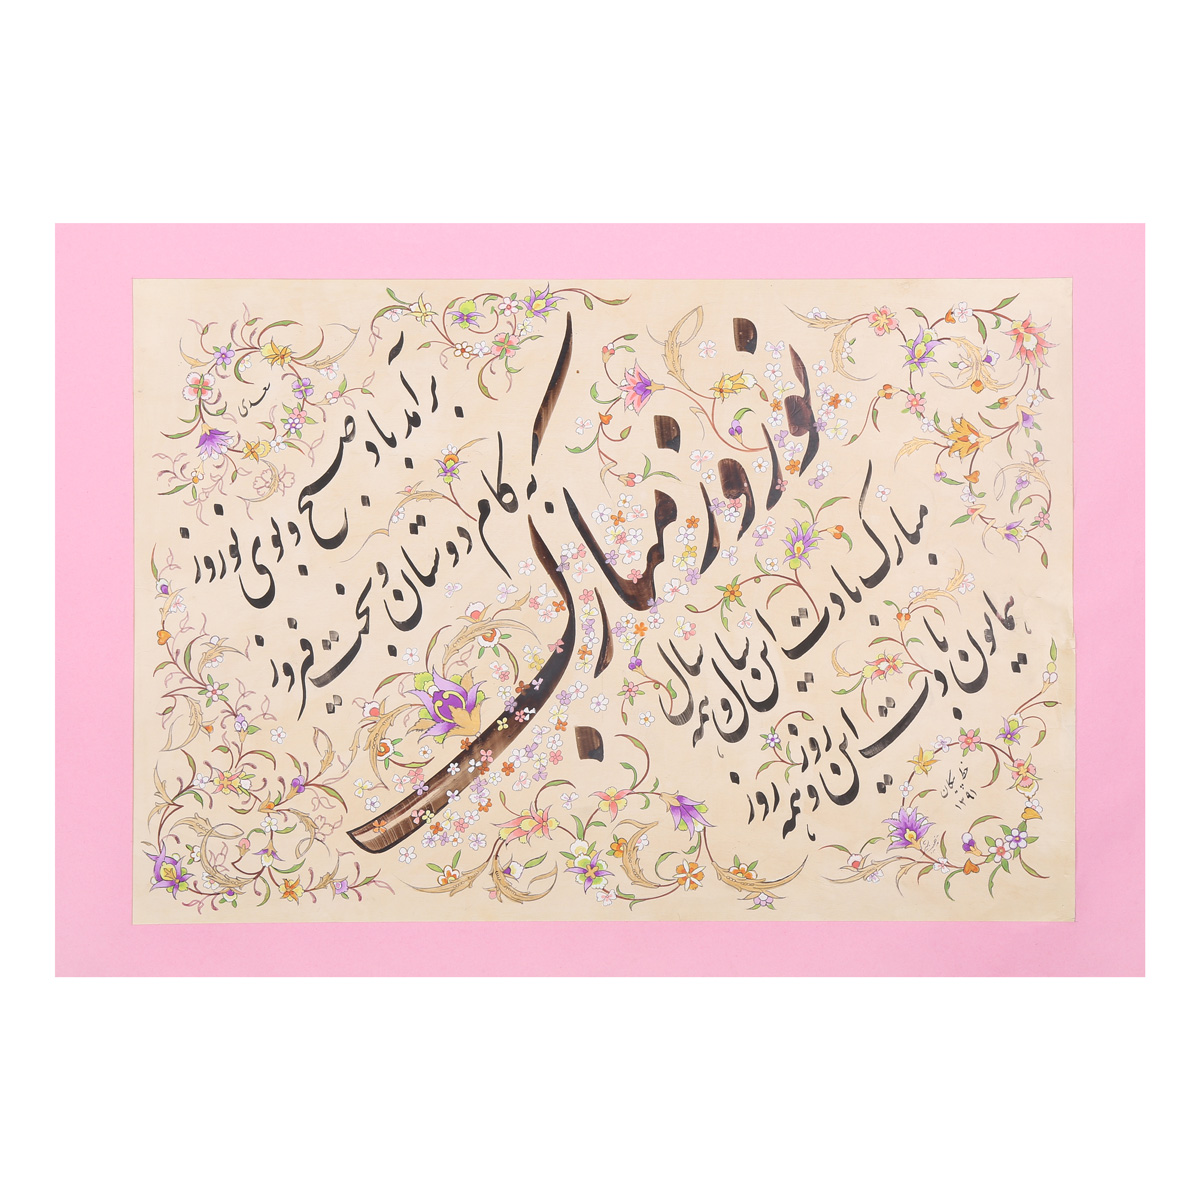 برآمد باد صبح و بوی نوروز
به کام دوستان و بخت فیروز
نوروز مبارک
مبارک بادت این سال و همه سال
همایون بادت این روز و همه روز
سعدی
۱۳۹۱